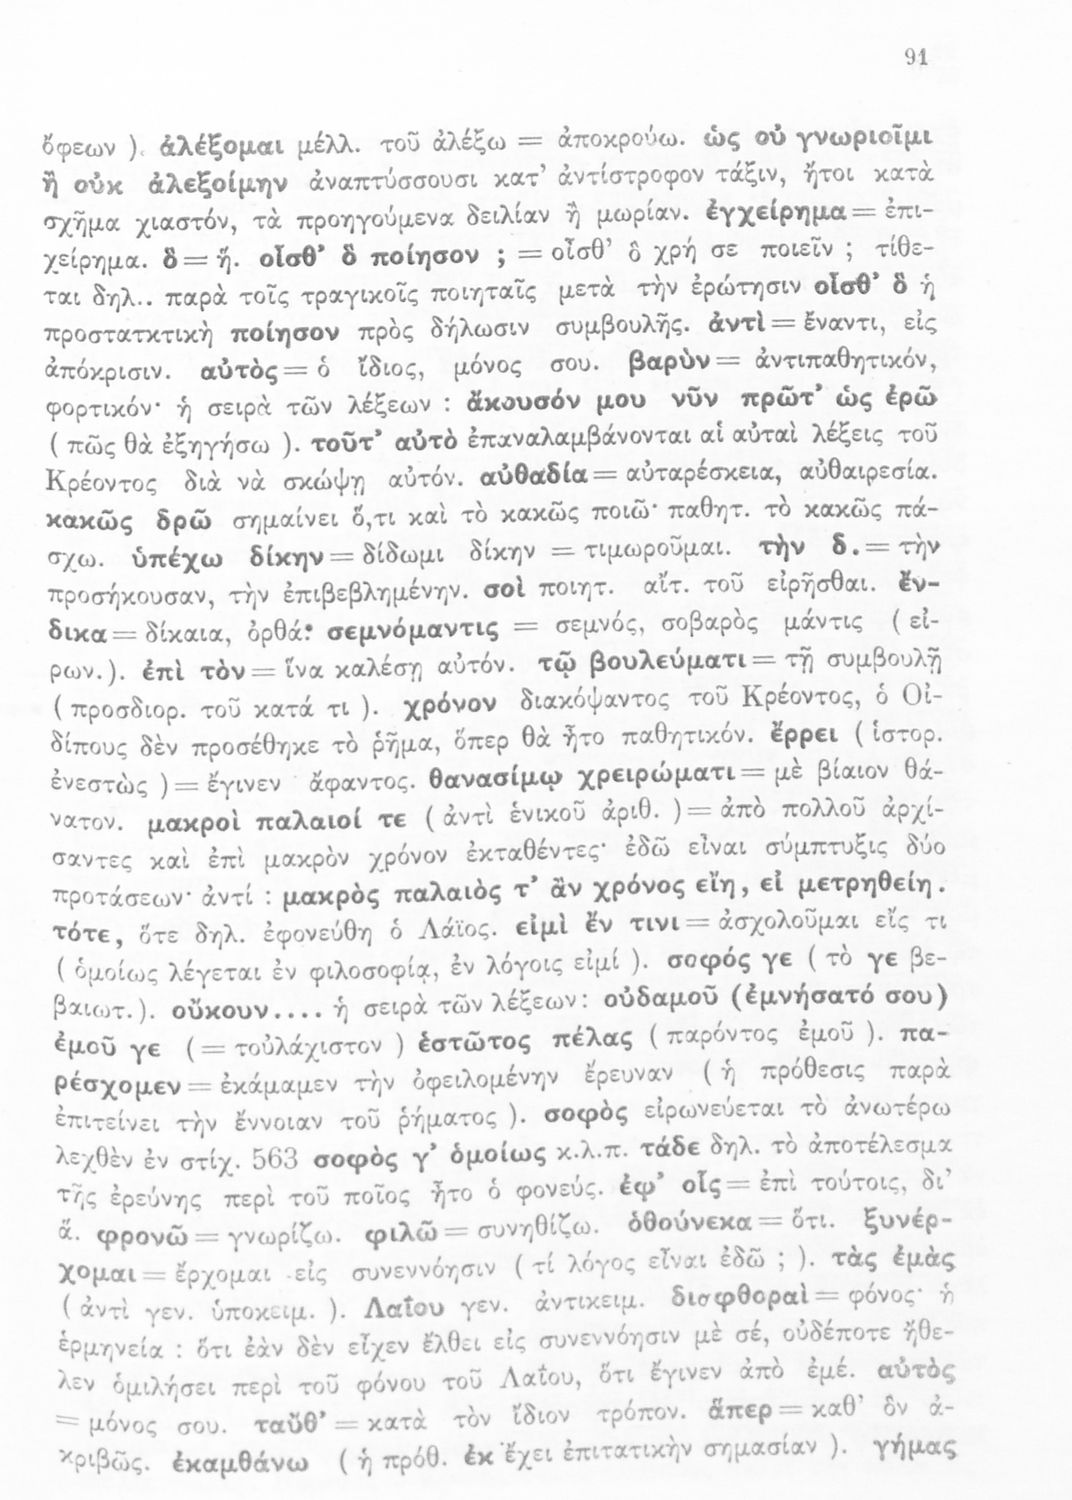 91
ὄφεων ). ἀλέξομαι μέλλ. τοῦ ἀλέξω = ἀποκρούω. ὡς οὐ γνωριοῖμι
ἢ οὐκ ἀλεξοίμην ἀναπτύσσουσι κατ’ ἀντίστροφον τάξιν, ἤτοι κατὰ
σχῆμα χιαστόν, τὰ προηγούμενα δειλίαν ἢ μωρίαν. ἐγχείρημα = ἐπι-
χείρημα. ὃ = ᾗ. οἶσθ’ ὃ ποίησον ; = οἶσθ’ ὃ χρή σε ποιεῖν ; τίθε-
ται δηλ.. παρὰ τοῖς τραγικοῖς ποιηταῖς μετὰ τὴν ἐρώτησιν οἶσθ’ ὃ ἡ
προστατκτικὴ ποίησον πρὸς δήλωσιν συμβουλῆς. ἀντὶ = ἔναντι, εἰς
ἀπόκρισιν. αὐτὸς = ὁ ἴδιος, μόνος σου. βαρὺν = ἀντιπαθητικόν,
φορτικόν· ἡ σειρὰ τῶν λέξεων : ἄκουσόν μου νῦν πρῶτ’ ὡς ἐρῶ
( πῶς θὰ ἐξηγήσω ). τοῦτ’ αὐτὸ ἐπαναλαμβάνονται αἱ αὐταὶ λέξεις τοῦ
Κρέοντος διὰ νὰ σκώψῃ αὐτόν. αὐθαδία = αὐταρέσκεια, αὐθαιρεσία.
κακῶς δρῶ σημαίνει ὅ,τι καὶ τὸ κακῶς ποιῶ· παθητ. τὸ κακῶς πά-
σχω. ὑπέχω δίκην = δίδωμι δίκην = τιμωροῦμαι. τὴν δ. = τὴν
προσήκουσαν, τὴν ἐπιβεβλημένην. σοὶ ποιητ. αἴτ. τοῦ εἰρῆσθαι. ἔν-
δικα = δίκαια, ὀρθά· σεμνόμαντις = σεμνός, σοβαρὸς μάντις ( εἰ-
ρων.). ἐπὶ τὸν = ἵνα καλέσῃ αὐτόν. τῷ βουλεύματι = τῇ συμβουλῇ
( προσδιορ. τοῦ κατά τι ). χρόνον διακόψαντος τοῦ Κρέοντος, ὁ Οἰ-
δίπους δὲν προσέθηκε τὸ ῥῆμα, ὅπερ θὰ ἦτο παθητικόν. ἔρρει ( ἱστορ.
ἐνεστὼς ) = ἔγινεν ἄφαντος. θανασίμῳ χρειρώματι = μὲ βίαιον θά-
νατον. μακροὶ παλαιοί τε ( ἀντὶ ἑνικοῦ ἀριθ. ) = ἀπὸ πολλοῦ ἀρχί-
σαντες καὶ ἐπὶ μακρὸν χρόνον ἐκταθέντες· ἐδῶ εἶναι σύμπτυξις δύο
προτάσεων· ἀντί : μακρὸς παλαιὸς τ’ ἂν χρόνος εἴη, εἰ μετρηθείη.
τότε, ὅτε δηλ. ἐφονεύθη ὁ Λάϊος. εἰμὶ ἔν τινι = ἀσχολοῦμαι εἴς τι
( ὁμοίως λέγεται ἐν φιλοσοφίᾳ, ἐν λόγοις εἰμί ). σοφός γε ( τὸ γε βε-
βαιωτ.). οὔκουν.... ἡ σειρὰ τῶν λέξεων: οὐδαμοῦ (ἐμνήσατό σου)
ἐμοῦ γε ( = τοὐλάχιστον ) ἑστῶτος πέλας ( παρόντος ἐμοῦ ). πα-
ρέσχομεν = ἐκάμαμεν τὴν ὀφειλομένην ἔρευναν ( ἡ πρόθεσις παρὰ
ἐπιτείνει τὴν ἔννοιαν τοῦ ῥήματος ). σοφὸς εἰρωνεύεται τὸ ἀνωτέρω
λεχθὲν ἐν στίχ. 563 σοφὸς γ’ ὁμοίως κ.λ.π. τάδε δηλ. τὸ ἀποτέλεσμα
τῆς ἐρεύνης περὶ τοῦ ποῖος ἦτο ὁ φονεύς. ἐφ’ οἷς = ἐπὶ τούτοις, δι’
ἅ. φρονῶ = γνωρίζω. φιλῶ = συνηθίζω. ὁθούνεκα = ὅτι. ξυνέρ-
χομαι = ἔρχομαι εἰς συνεννόησιν ( τί λόγος εἶναι ἐδῶ ; ). τὰς ἐμὰς
( ἀντὶ γεν. ὑποκειμ. ). Λαΐου γεν. ἀντικειμ. διαφθοραὶ = φόνος· ἡ
ἑρμηνεία : ὅτι ἐὰν δὲν εἶχεν ἔλθει εἰς συνεννόησιν μὲ σέ, οὐδέποτε ἤθε-
λεν ὁμιλήσει περὶ τοῦ φόνου τοῦ Λαΐου, ὅτι ἔγινεν ἀπὸ ἐμέ. αὐτὸς
= μόνος σου. ταὔθ’ = κατὰ τὸν ἴδιον τρόπον. ἅπερ = καθ’ ὃν ἀ-
κριβῶς. ἐκαμθάνω ( ἡ πρόθ. ἐκ ἔχει ἐπιτατικὴν σημασίαν ). γήμας